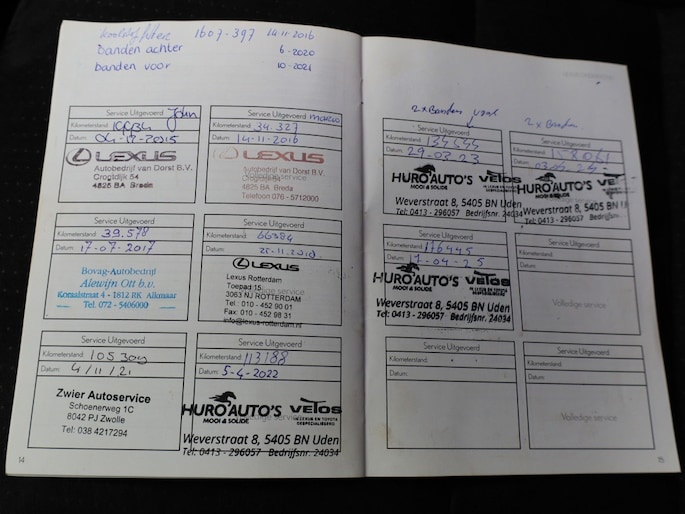 1607-397 14-11-2016
Banden achter 6-2020
banden voor 10-2021
Service Uitgevoerd John
Kilometerstand:
Datum: 04-12-2015
LEXUS
Autobedrijf van Dorst B.V.
Crogtdijk 54
4825 BA Breda
Service Uitgevoerd
Kilometerstand: 34.327
Datum: 14-11-2016
LEXUS
Autobedrijf van Dorst B.V.
Volledige service
Crogtdijk 54
4825 BA Breda
Telefoon 076 - 5712000
Service Uitgevoerd
Kilometerstand: 39.578
Datum: 17-07-2017
Bovag-Autobedrijf
Alewijn Ott b.v.
Koraalstraat 4 - 1812 RK Alkmaar
Tel. 072 - 5406000
Service Uitgevoerd
Kilometerstand: 66384
Datum:
LEXUS
Lexus Rotterdam
Toepad 15
3063 NJ ROTTERDAM
Tel: 010 - 452 90 01
Fax: 010 - 452 98 31
info@lexus-rotterdam.nl
Service Uitgevoerd
Kilometerstand: 105309
Datum: 4/11/21
Zwier Autoservice
Schoenerweg 1C
8042 PJ Zwolle
Tel: 038 4217294
Service Uitgevoerd
Kilometerstand: 113188
Datum: 5-4-2022
HURO AUTO'S VETOS
MOOI & SOLIDE IN LEXUS EN TOYOTA GESPECIALISEERD
Weverstraat 8, 5405 BN Uden
Tel: 0413 - 296057 Bedrijfsnr. 24034
14
2x Banden
Service Uitgevoerd
Kilometerstand:
Datum: 29-03-23
HURO AUTO'S VETOS
MOOI & SOLIDE
Weverstraat 8, 5405 BN Uden
Tel: 0413 - 296057 Bedrijfsnr. 24034
2x Banden
Service Uitgevoerd
Kilometerstand:
Datum:
HURO AUTO'S
MOOI & SOLIDE
Weverstraat 8, 5405 BN
Tel: 0413 - 296057 Bedrijfsnr.
Service Uitgevoerd
Kilometerstand: 176445
Datum: 17-04-25
HURO AUTO'S VETOS
MOOI & SOLIDE IN LEXUS EN TOYOTA GESPECIALISEERD
Weverstraat 8, 5405 BN Uden
Tel: 0413 - 296057 Bedrijfsnr. 24034
Service Uitgevoerd
Kilometerstand:
Datum:
Volledige service
Service Uitgevoerd
Kilometerstand:
Datum:
Service Uitgevoerd
Kilometerstand:
Datum:
Volledige service
15